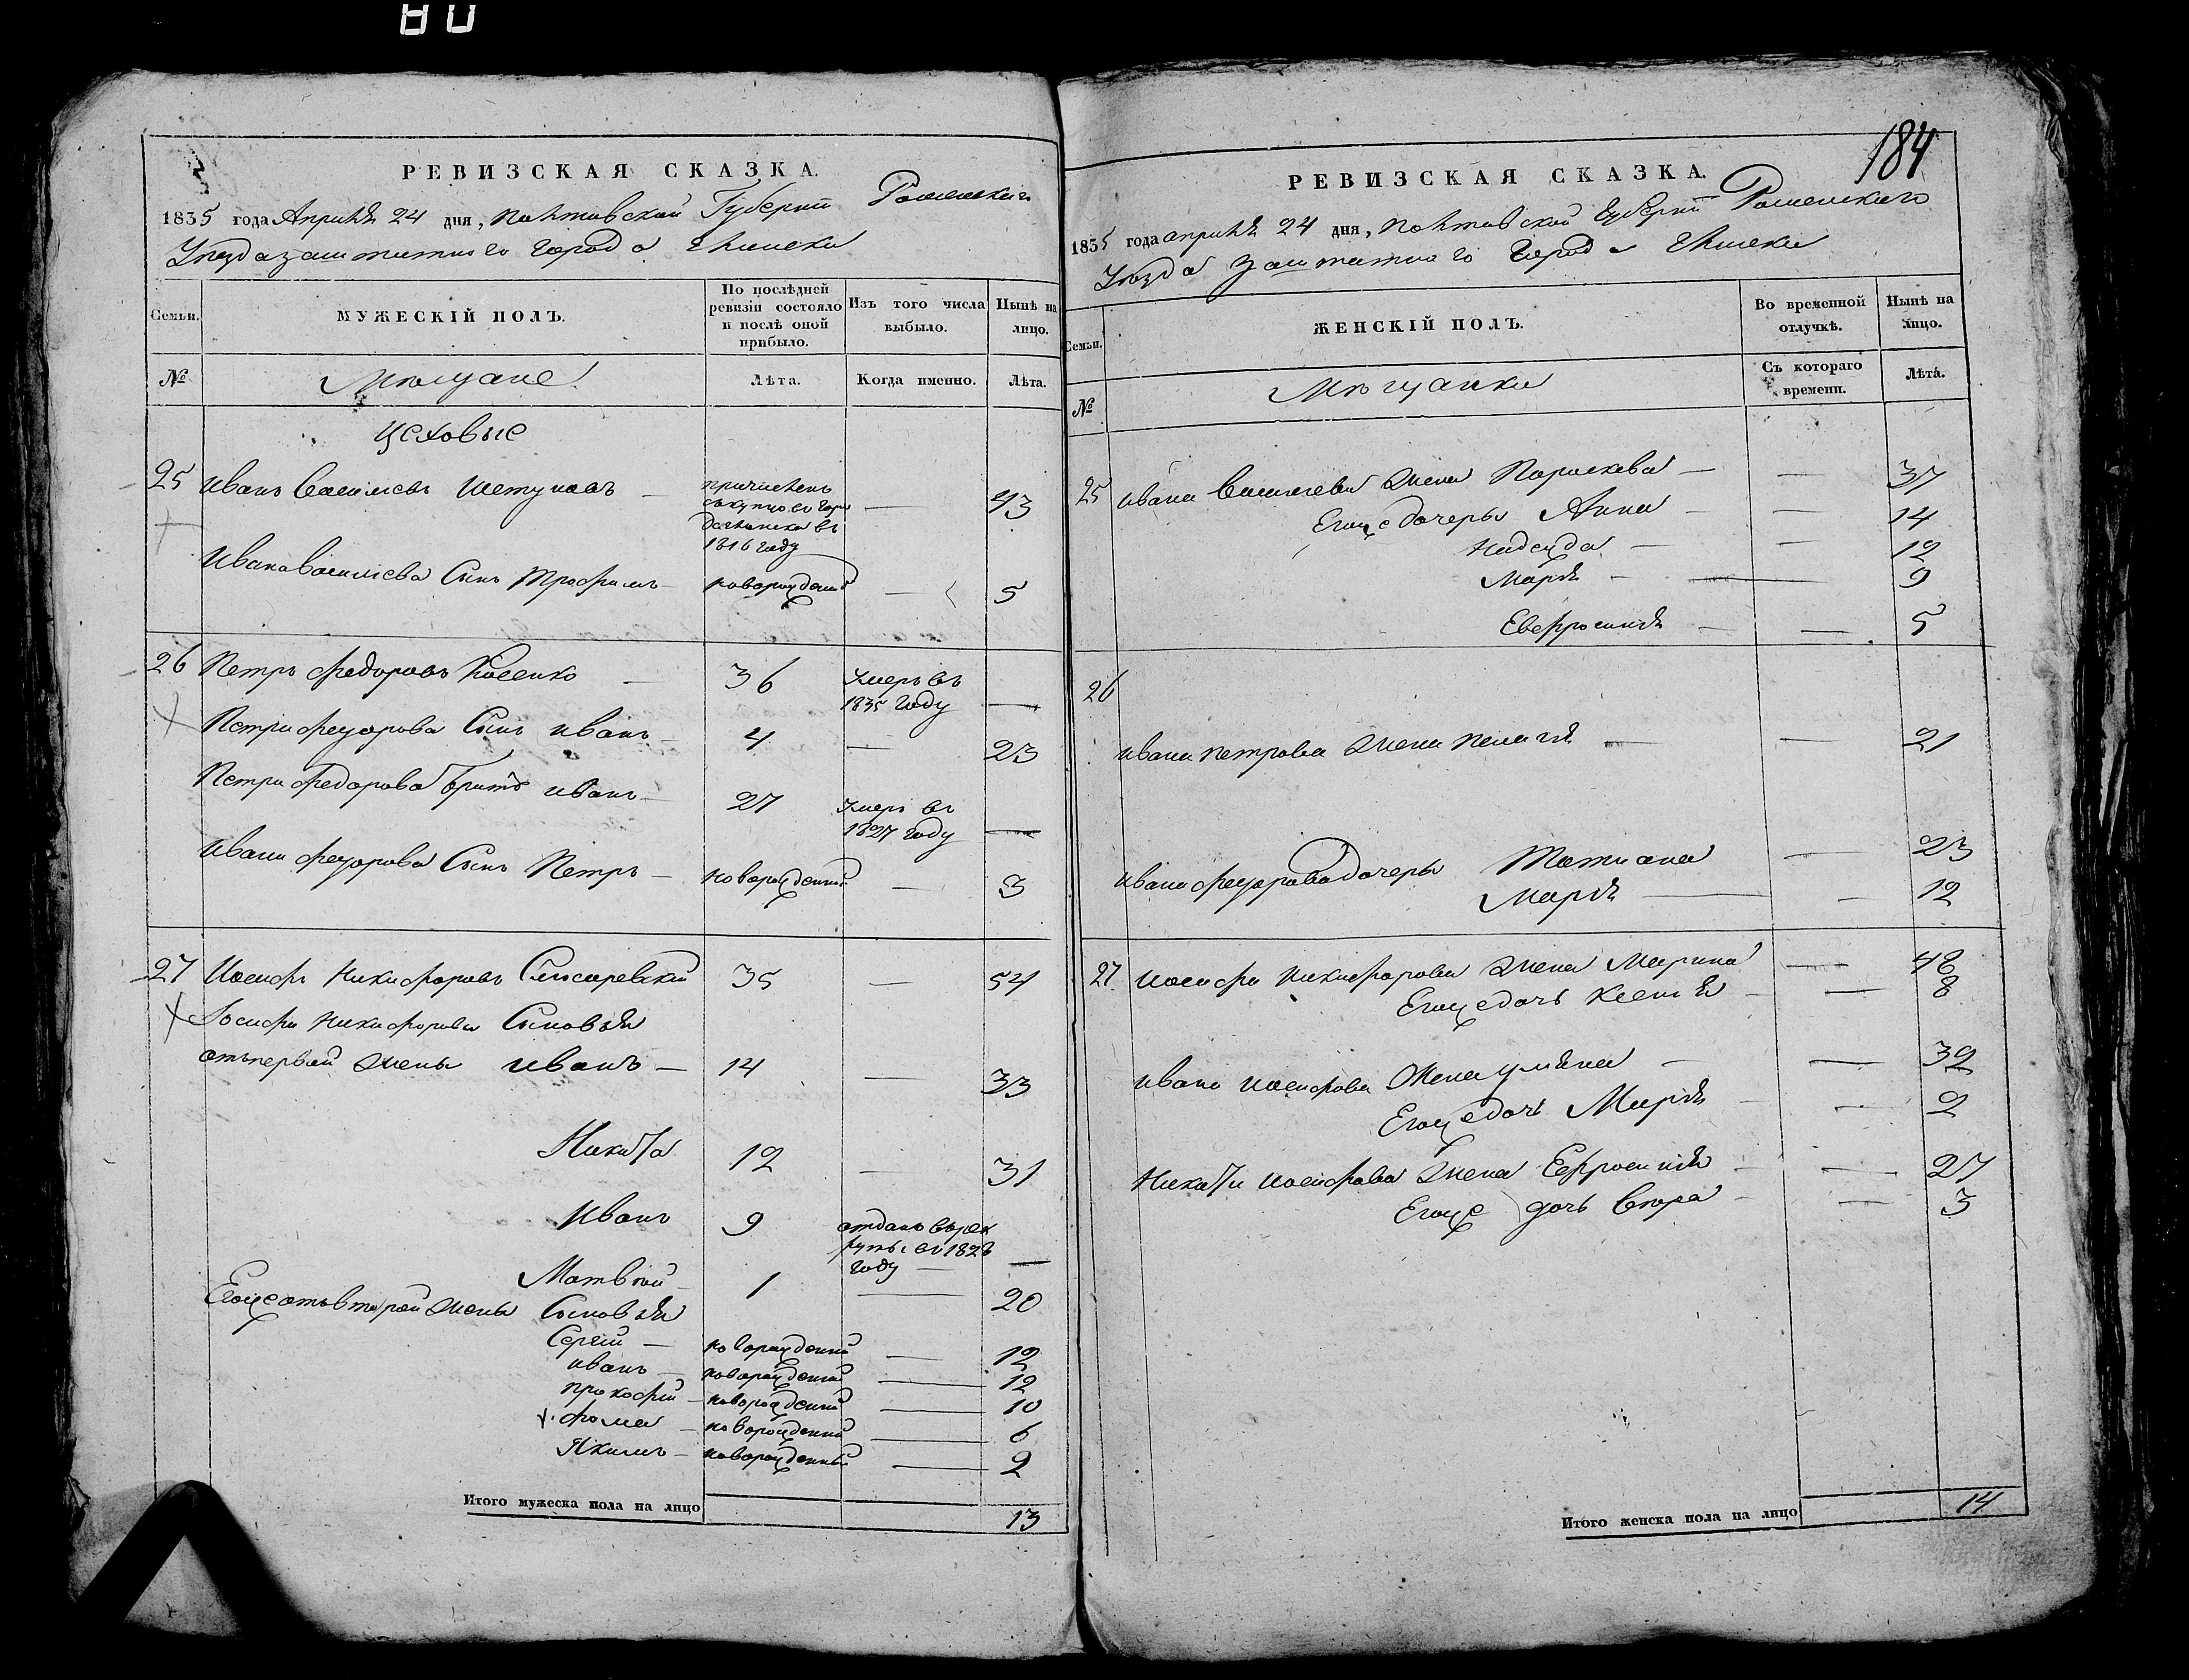 80
РЕВИЗСКАЯ СКАЗКА.
1835 года Апрѣля 24 дня, Полтавской Губерніи Роменскаго
Уѣзда заштатнаго города Глинска
Семьи.
МУЖЕСКІЙ ПОЛЪ.
По послѣдней ревизіи состояло и послѣ оной прибыло.
Изъ того числа выбыло.
Нынѣ на лицо.
№
Мѣщане
Лѣта.
Когда именно.
Лѣта.
Цеховые
25 Иванъ Васильевъ Шетуновъ — причисленъ — 43
въ
1816 году
Ивана Васильева Сынъ Трофимъ — новорожденный — 5
26 Петръ Федоровъ Косенко — 36 Умеръ въ 1835 году —
Петра Федорова Сынъ Иванъ — 4 — 23
Петра Федорова братъ Иванъ — 27 Умеръ въ 1827 году —
Ивана Федорова Сынъ Петръ — новорожденный — 3
27 Иосифъ Никифоровъ Слюсаревский 35 — 54
Іосифа Никифорова Сыновья
отъ первой жены Иванъ — 14 — 33
Никита 12 — 31
Иванъ 9 отданъ въ рекруты въ 1828 году —
Матвѣй — 1 — 20
Егоже отъ второй жены Сыновья
Сергій — новорожденный — 12
Иванъ — новорожденный — 12
Прокофій — новорожденный — 10
Фома — новорожденный — 6
Якимъ — новорожденный — 2
Итого мужеска пола на лицо 13
184
РЕВИЗСКАЯ СКАЗКА.
1835 года Апрѣля 24 дня, Полтавской Губерніи Роменскаго
Уѣзда Заштатнаго Города Глинска
Семьи.
ЖЕНСКІЙ ПОЛЪ.
Во временной отлучкѣ.
Нынѣ на лицо.
№
Мѣщанки
Съ котораго времени.
Лѣта.
25 Ивана Васильева жена Параскева — — 37
Егоже дочери Анна — — 14
Надежда — — 12
Марія — — 9
Евфросинія — — 5
26
Ивана Петрова жена Пелагія — — 21
Ивана Федорова дочери Татиана — 23
Марія — — 12
27 Иосифа Никифорова жена Марина — 48
Егоже дочь Ксенія — — 8
Ивана Иосифова жена Уляна — — 32
Егоже дочь Марія — — 2
Никиты Иосифова жена Ефросинія — — 27
Егоже дочь — — 3
Итого женска пола на лицо 14